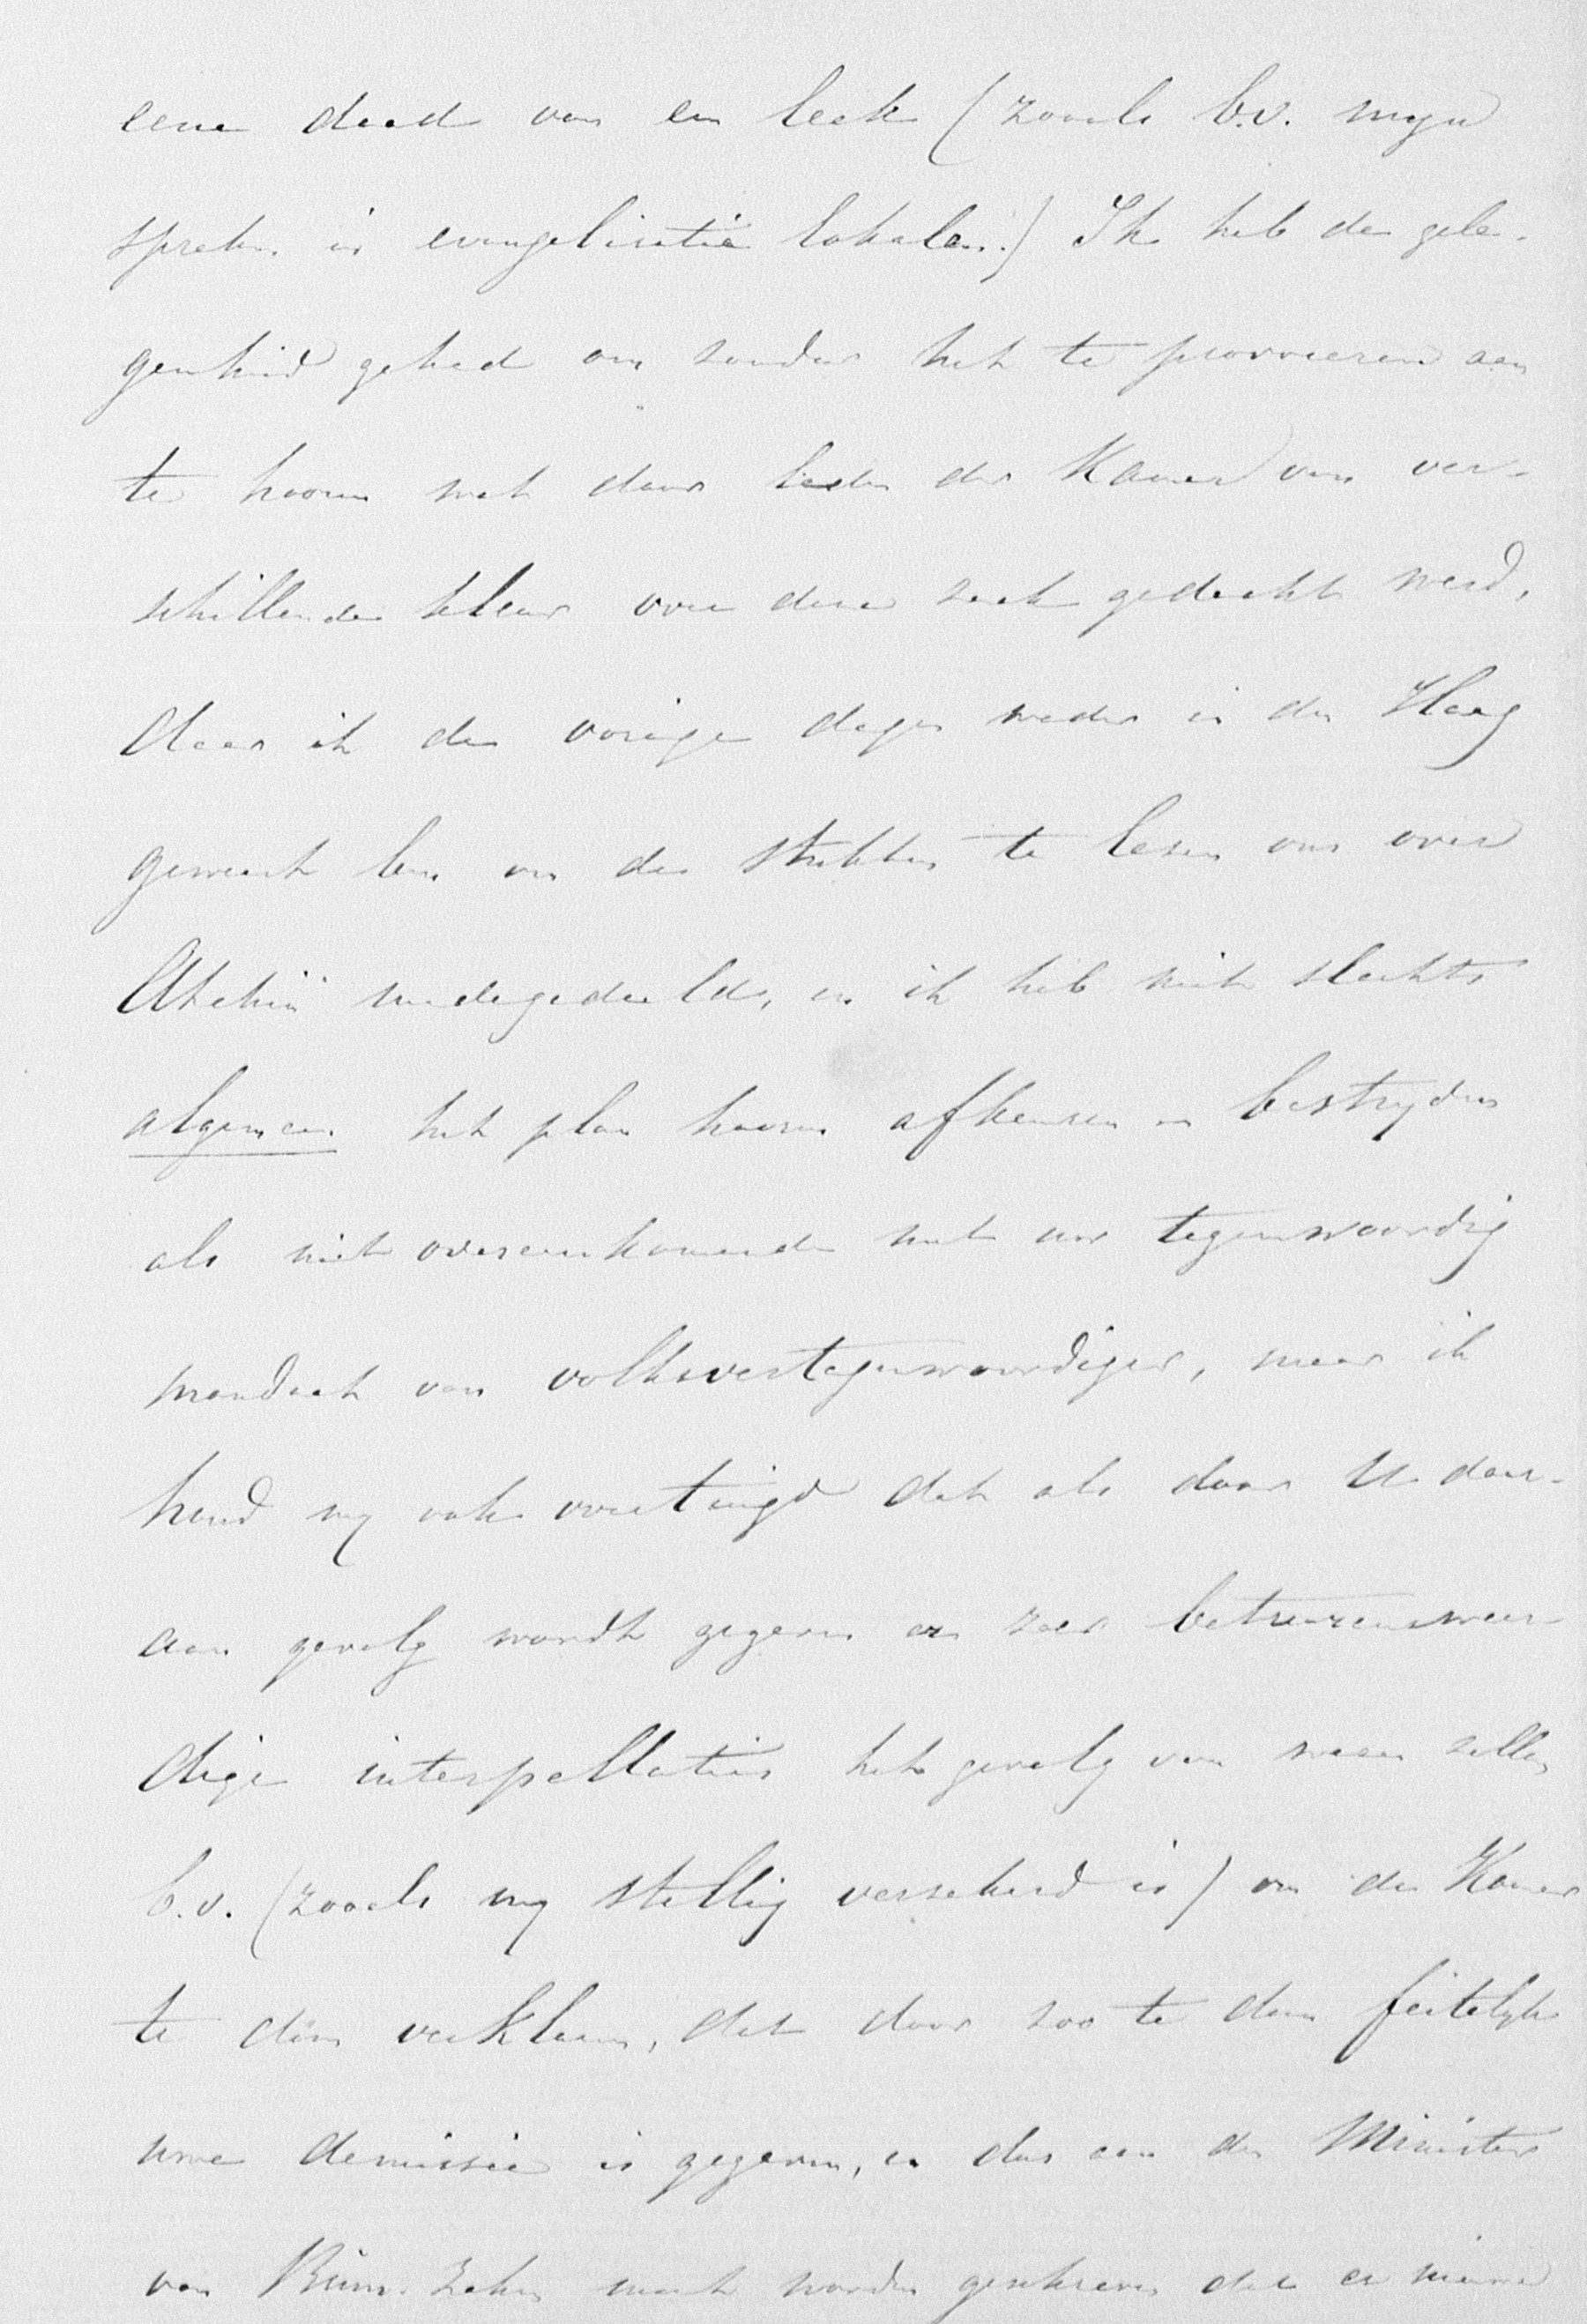 eene daad van een leek (zooals b.v. mijn
spreken in evangelisatie lokalen.) Ik heb de gele-
genheid gehad om zonder het te provoceren aan
te hooren wat door leden der Kamer van ver-
schillende kleur over deze zaak gedacht werd,
daar ik de vorige dagen weder in den Haag
geweest ben om de stukken te lezen ons over
Atchin medegedeeld, en ik heb niet slechts
algemeen het plan hooren afkeuren en bestrijden
als niet overeenkomende met uw tegenwoordig
mandaat van volksvertegenwoordiger, maar ik
houd mij ook overtuigd dat als door U daar-
aan gevolg wordt gegeven er zeer betreurenswaar-
dige interpellaties het gevolg van wezen zullen
b.v. (zooals mij stellig verzekerd is) om de Kamer
te doen verklaren, dat door zoo te doen feitelijk
uwe demissie is gegeven, en dus aan den Minister
van Binn. Zaken moet worden geschreven dat er nieuwe